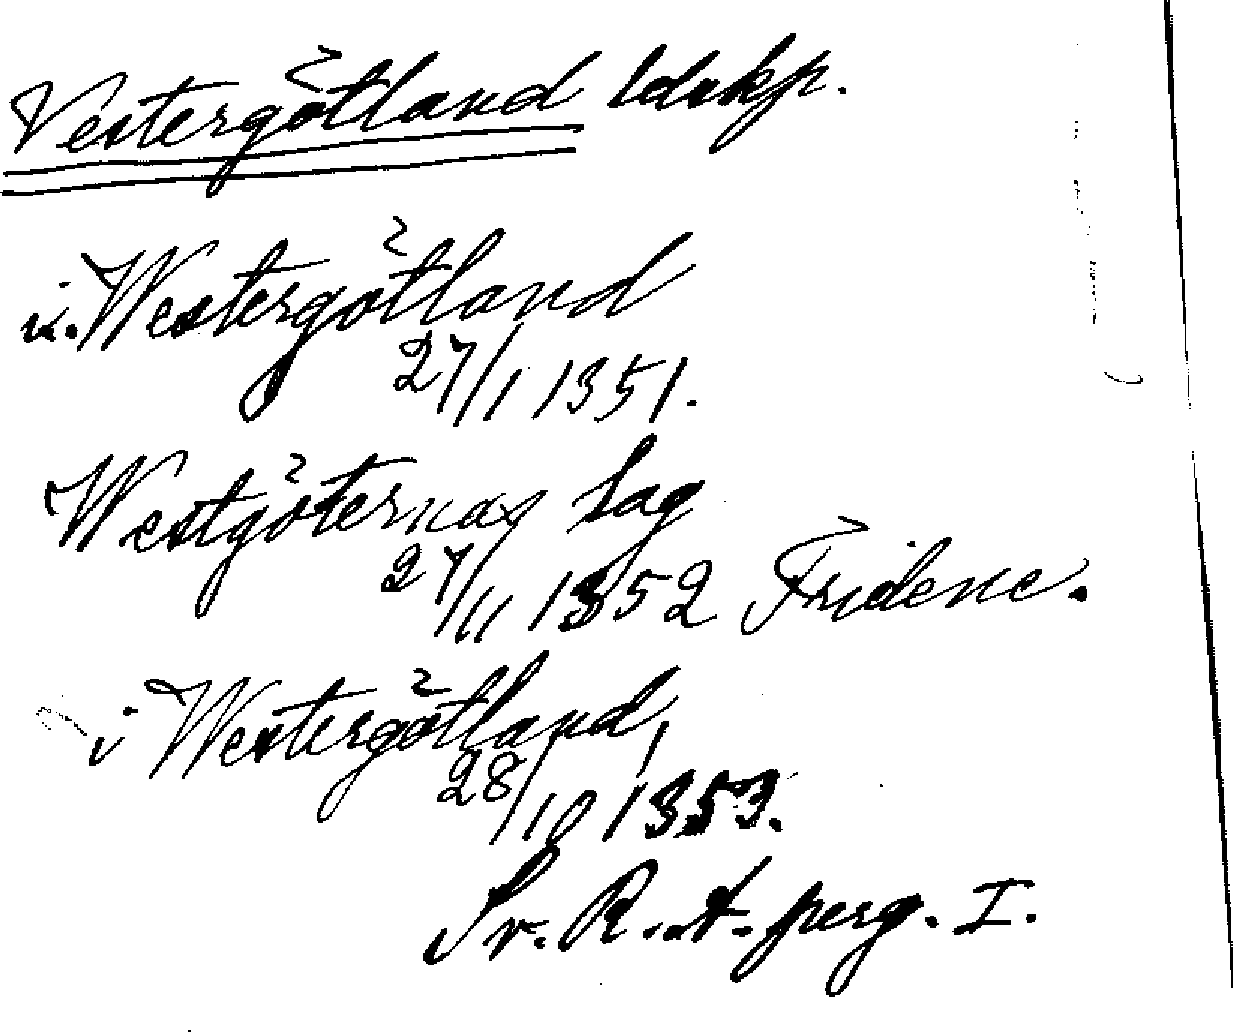 Vestergötland ldskp.
i. Westergötland
27/1 1351.
Westgöternas Lag
27/11 1352 Fridene.
i Westergötland,
28/10 1353.
Sv. R. A. perg. I.